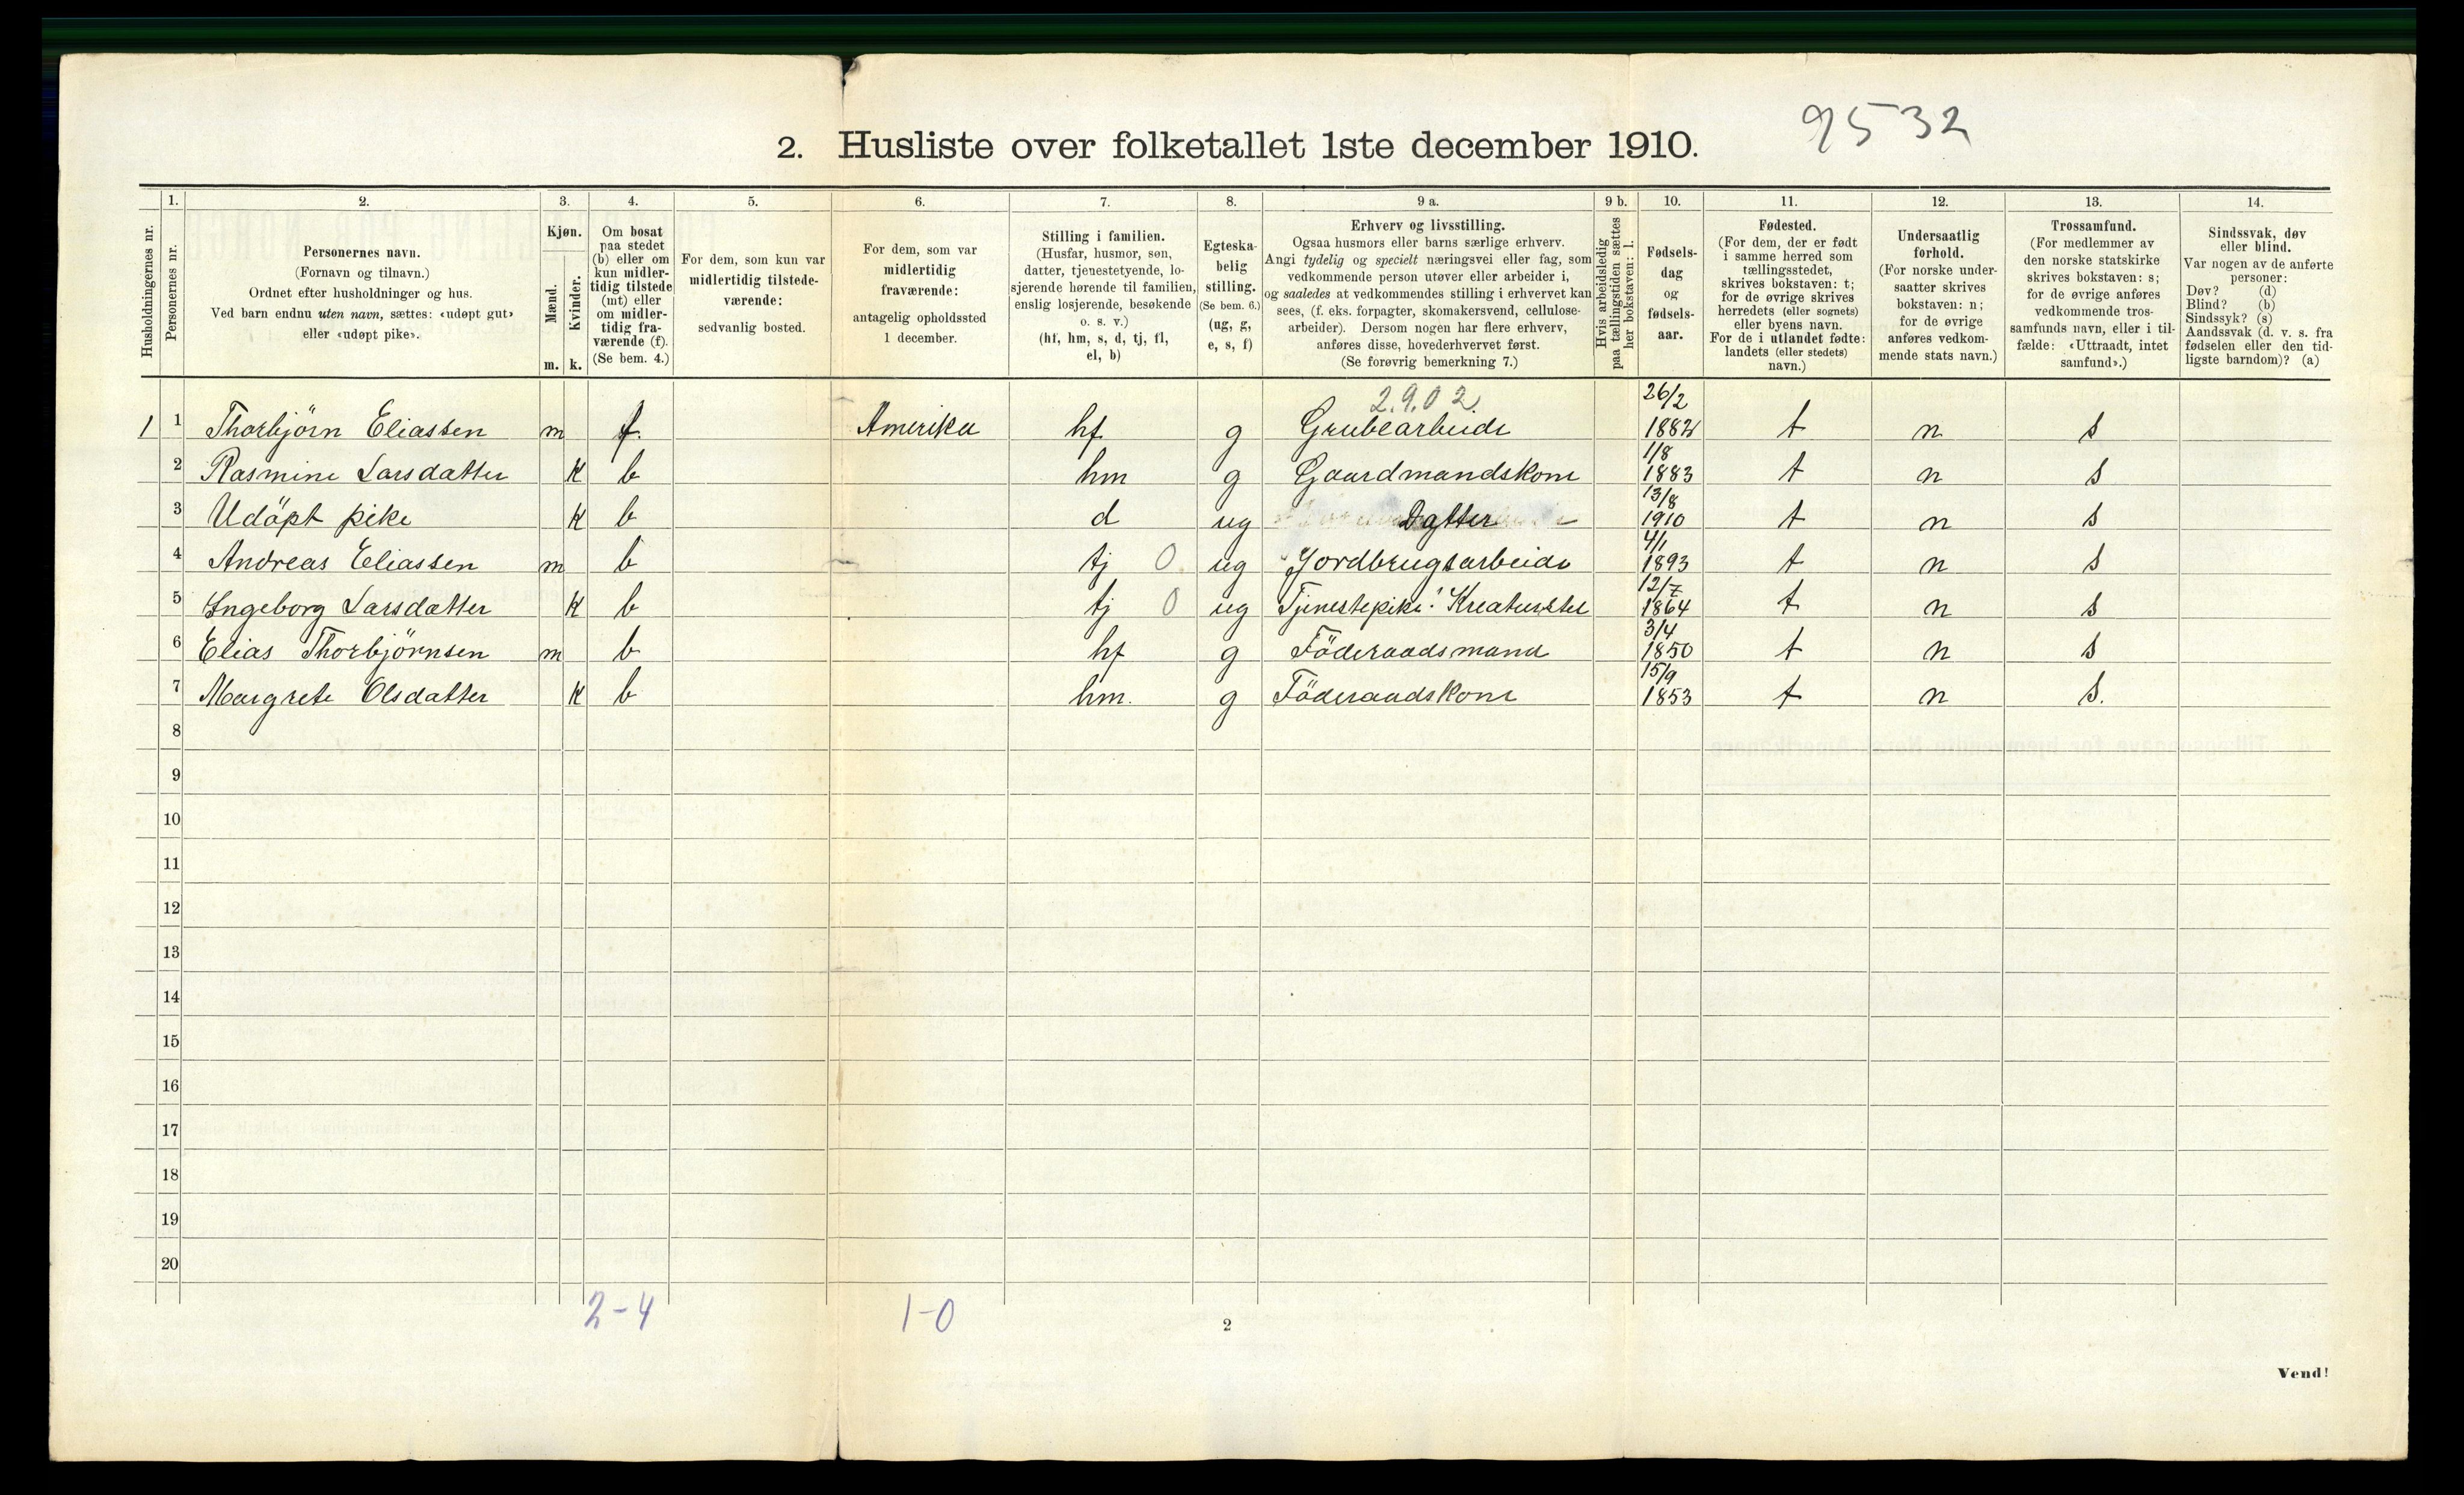 9532
2. Husliste over folketallet 1ste december 1910.
Husholdningernes nr.
1.
Personernes nr.
2.
Personernes navn.
(Fornavn og tilnavn.)
Ordnet efter husholdninger og hus.
Ved barn endnu uten navn, sættes: «udøpt gut»
eller «udøpt pike».
3.
Kjøn.
Mænd.
Kvinder.
m. k.
4.
Om bosat
paa stedet
(b) eller om
kun midler-
tidig tilstede
(mt) eller
om midler-
tidig fra-
værende (f).
(Se bem. 4.)
5.
For dem, som kun var
midlertidig tilstede-
værende:
sedvanlig bosted.
6.
For dem, som var
midlertidig
fraværende:
antagelig opholdssted
1 december.
7.
Stilling i familien.
(Husfar, husmor, søn,
datter, tjenestetyende, lo-
sjerende hørende til familien,
enslig losjerende, besøkende
o. s. v.)
(hf, hm, s, d, tj, fl,
el, b)
8.
Egteska-
belig
stilling.
(Se bem. 6.)
(ug, g,
e, s, f)
9 a.
Erhverv og livsstilling.
Ogsaa husmors eller barns særlige erhverv.
Angi tydelig og specielt næringsvei eller fag, som
vedkommende person utøver eller arbeider i,
og saaledes at vedkommendes stilling i erhvervet kan
sees, (f. eks. forpagter, skomakersvend, cellulose-
arbeider). Dersom nogen har flere erhverv,
anføres disse, hovederhvervet først.
(Se forøvrig bemerkning 7.)
9 b.
Hvis arbeidsledig
paa tællingstiden sættes
her bokstaven: l.
10.
Fødsels-
dag
og
fødsels-
aar.
11.
Fødested.
(For dem, der er født
i samme herred som
tællingsstedet,
skrives bokstaven: t;
for de øvrige skrives
herredets (eller sognets)
eller byens navn.
For de i utlandet fødte:
landets (eller stedets)
navn.)
12.
Undersaatlig
forhold.
(For norske under-
saatter skrives
bokstaven: n;
for de øvrige
anføres vedkom-
mende stats navn.)
13.
Trossamfund.
(For medlemmer av
den norske statskirke
skrives bokstaven: s;
for de øvrige anføres
vedkommende tros-
samfunds navn, eller i til-
fælde: «Uttraadt, intet
samfund».)
14.
Sindssvak, døv
eller blind.
Var nogen av de anførte
personer:
Døv? (d)
Blind? (b)
Sindssyk? (s)
Aandssvak (d. v. s. fra
fødselen eller den tid-
ligste barndom)? (a)
2.9.02. 26/2
1 1 Thorbjörn Eliassen m f. Amerika hf g Grubearbeide 1882 t n s
1/8
2 Rasmine Larsdatter K b hm g Gaardmandskone 1883 t n s
13/8
3 Udöpt pike K b d ug Datter 1910 t n s
4/1
4 Andreas Eliassen m b tj 0 ug Jordbrugsarbeide 1893 t n s
12/7
5 Ingeborg Larsdatter K b tj 0 ug Tjenestepike: Kreaturstel 1864 t n s
3/4
6 Elias Thorbjörnsen m b hf g Föderaadsmand 1850 t n s
15/9
7 Margrete Olsdatter K b hm. g Föderaadskone 1853 t n s.
8
9
10
11
12
13
14
15
16
17
18
19
20
2-4 1-0
2
Vend!